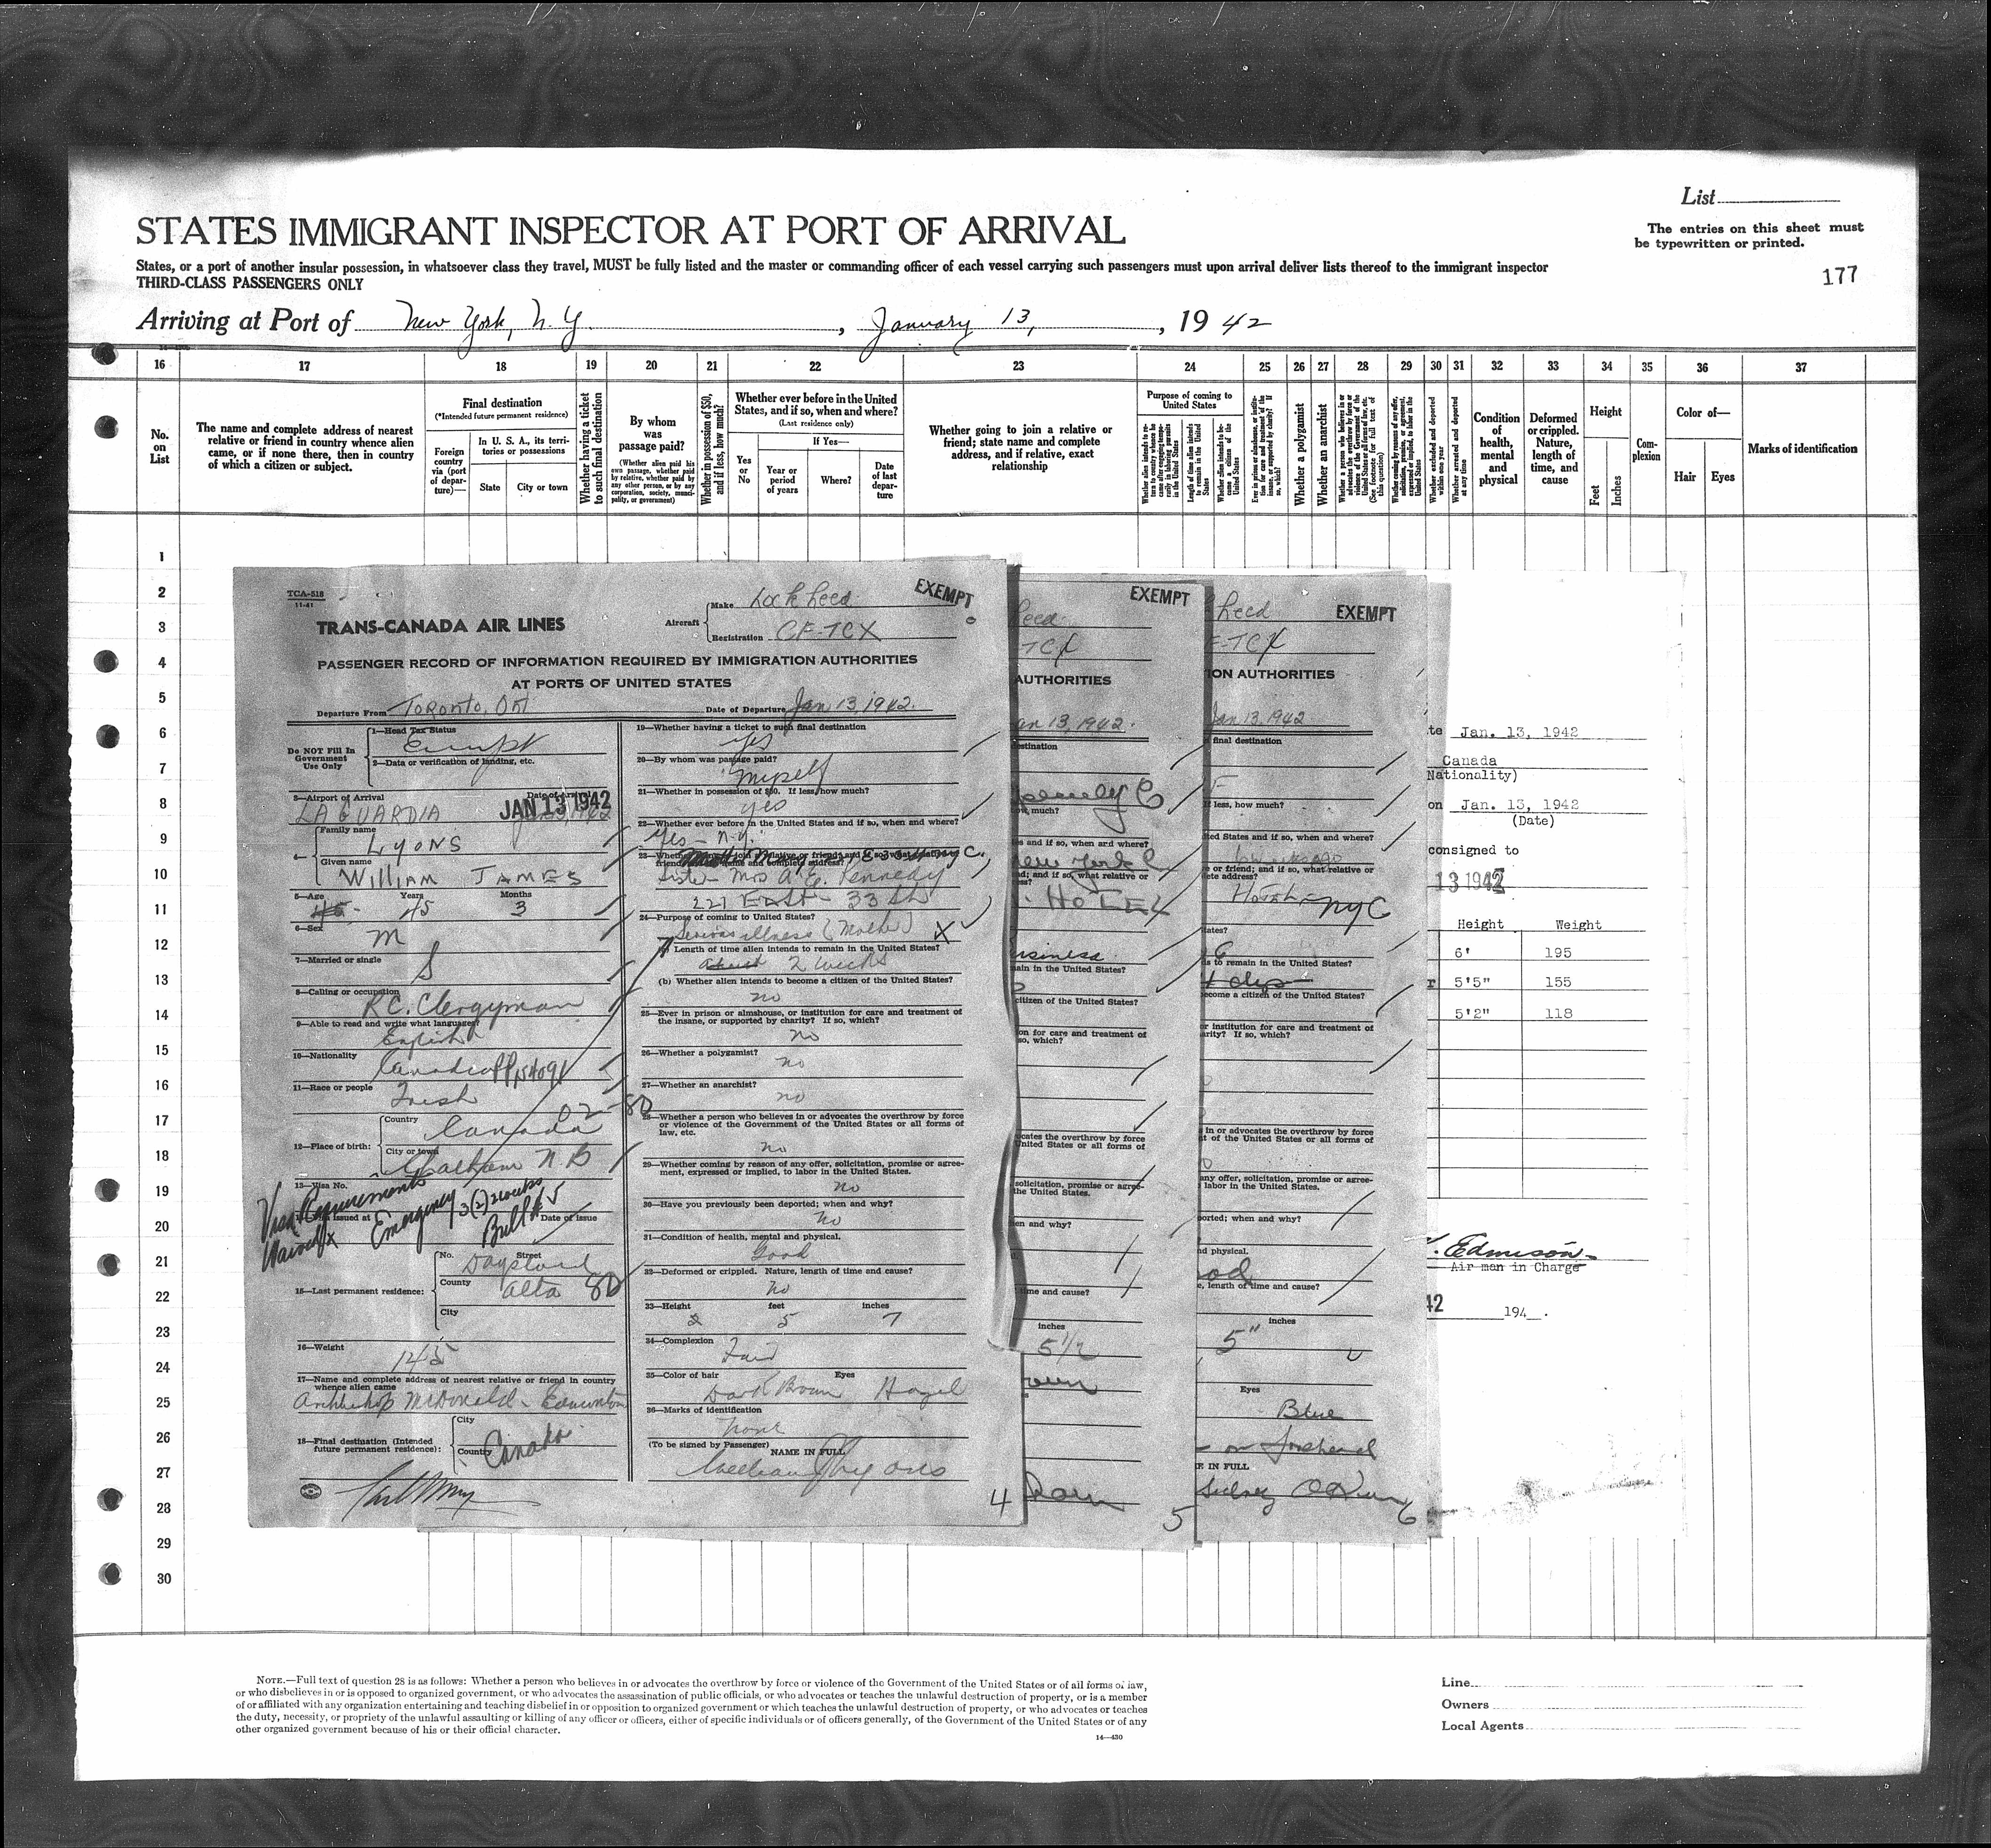 List
STATES IMMIGRANT INSPECTOR AT PORT OF ARRIVAL
The entries on this sheet must
be typewritten or printed.
States, or a port of another insular possession, in whatsoever class they travel, MUST be fully listed and the master or commanding officer of each vessel carrying such passengers must upon arrival deliver lists thereof to the immigrant inspector
THIRD-CLASS PASSENGERS ONLY
177
Arriving at Port of New York, N.Y. , January 13, , 1942
16 17 18 19 20 21 22 23 24 25 26 27 28 29 30 31 32 33 34 35 36 37
No.
on
List
The name and complete address of nearest
relative or friend in country whence alien
came, or if none there, then in country
of which a citizen or subject.
Final destination
(*Intended future permanent residence)
Foreign
country
via (port
of depar-
ture)—
In U. S. A., its terri-
tories or possessions
State
City or town
Whether having a ticket
to such final destination
By whom
was
passage paid?
(Whether alien paid his
own passage, whether paid
by relative, whether paid by
any other person, or by any
corporation, society, munici-
pality, or government)
Whether in possession of $50,
and if less, how much?
Whether ever before in the United
States, and if so, when and where?
(Last residence only)
Yes
or
No
If Yes—
Year or
period
of years
Where?
Date
of last
depar-
ture
Whether going to join a relative or
friend; state name and complete
address, and if relative, exact
relationship
Purpose of coming to
United States
Length of time alien intends
to remain in the United
States
Whether a polygamist
Whether an anarchist
Whether excluded and deported
within one year
Whether arrested and deported
at any time
Condition
of
health,
mental
and
physical
Deformed
or crippled.
Nature,
length of
time, and
cause
Height
Feet
Inches
Com-
plexion
Color of—
Hair
Eyes
Marks of identification
1
2
3
4
5
6
7
8
9
10
11
12
13
14
15
16
17
18
19
20
21
22
23
24
25
26
27
28
29
30
TCA-518
11-41
TRANS-CANADA AIR LINES
Aircraft
Make Lockheed
Registration CF-TCX
EXEMPT
PASSENGER RECORD OF INFORMATION REQUIRED BY IMMIGRATION AUTHORITIES
AT PORTS OF UNITED STATES
Departure From Toronto, Ont
Date of Departure Jan 13, 1942.
Do NOT Fill In
Government
Use Only
1—Head Tax Status
Exempt
2—Data or verification of landing, etc.
3—Airport of Arrival
LAGUARDIA
Date of Arrival
JAN 13 1942
4—
Family name
LYONS
Given name
WILLIAM JAMES
5—Age
Years
45
Months
3
6—Sex
M
7—Married or single
S
8—Calling or occupation
R.C. Clergyman
9—Able to read and write what languages?
English
10—Nationality
11—Race or people
Irish
02-80
12—Place of birth:
Country
Canada
City or town
Chatham N B
13—Visa No.
Visa Requirements
Waived
Emergency 3(2) 2 weeks
Issued at
Date of issue
15—Last permanent residence:
No.
Street
County
Alta 80
City
16—Weight
145
17—Name and complete address of nearest relative or friend in country
whence alien came
Archbishop McDonald - Edmonton
18—Final destination (Intended
future permanent residence):
City
Country
Canada
19—Whether having a ticket to such final destination
Yes
20—By whom was passage paid?
Myself
21—Whether in possession of $50. If less, how much?
yes
22—Whether ever before in the United States and if so, when and where?
Yes - N.Y.
Sister - Mrs A. E. Kennedy
221 East - 33 St
24—Purpose of coming to United States?
Serious illness (Mother) X
Length of time alien intends to remain in the United States?
2 weeks
(b) Whether alien intends to become a citizen of the United States?
no
25—Ever in prison or almshouse, or institution for care and treatment of
the insane, or supported by charity? If so, which?
no
26—Whether a polygamist?
no
27—Whether an anarchist?
no
28—Whether a person who believes in or advocates the overthrow by force
or violence of the Government of the United States or all forms of
law, etc.
No
29—Whether coming by reason of any offer, solicitation, promise or agree-
ment, expressed or implied, to labor in the United States.
no
30—Have you previously been deported; when and why?
No
31—Condition of health, mental and physical.
Good
32—Deformed or crippled. Nature, length of time and cause?
No
33—Height
feet
5
inches
7
34—Complexion
Fair
35—Color of hair
Dark Brown
Eyes
Hazel
36—Marks of identification
None
(To be signed by Passenger)
NAME IN FULL
William J Lyons
4
EXEMPT
heed
TCX
AUTHORITIES
an 13, 1942.
estination
ow much?
es and if so, when and where?
New York
nd; and if so, what relative or
ss?
HOTEL
usiness
main in the United States?
citizen of the United States?
on for care and treatment of
so, which?
ocates the overthrow by force
United States or all forms of
solicitation, promise or agree-
the United States.
en and why?
time and cause?
inches
5 1/2
5
heed
EXEMPT
F-TCX
ION AUTHORITIES
Jan 13, 1942
final destination
If less, how much?
ted States and if so, when and where?
6 weeks ago
e or friend; and if so, what relative or
ete address?
NYC
tates?
s to remain in the United States?
become a citizen of the United States?
or institution for care and treatment of
arity? If so, which?
in or advocates the overthrow by force
t of the United States or all forms of
any offer, solicitation, promise or agree-
labor in the United States.
ported; when and why?
nd physical.
ood
e, length of time and cause?
inches
5"
Eyes
Blue
on forehead
E IN FULL
6
te Jan. 13, 1942
Canada
Nationality)
on Jan. 13, 1942
(Date)
consigned to
13 1942
Height Weight
6' 195
r 5'5" 155
5'2" 118
Edmison
Air man in Charge
42
194 .
NOTE.—Full text of question 28 is as follows: Whether a person who believes in or advocates the overthrow by force or violence of the Government of the United States or of all forms of law,
or who disbelieves in or is opposed to organized government, or who advocates the assassination of public officials, or who advocates or teaches the unlawful destruction of property, or is a member
of or affiliated with any organization entertaining and teaching disbelief in or opposition to organized government or which teaches the unlawful destruction of property, or who advocates or teaches
the duty, necessity, or propriety of the unlawful assaulting or killing of any officer or officers, either of specific individuals or of officers generally, of the Government of the United States or of any
other organized government because of his or their official character.
14—430
Line
Owners
Local Agents